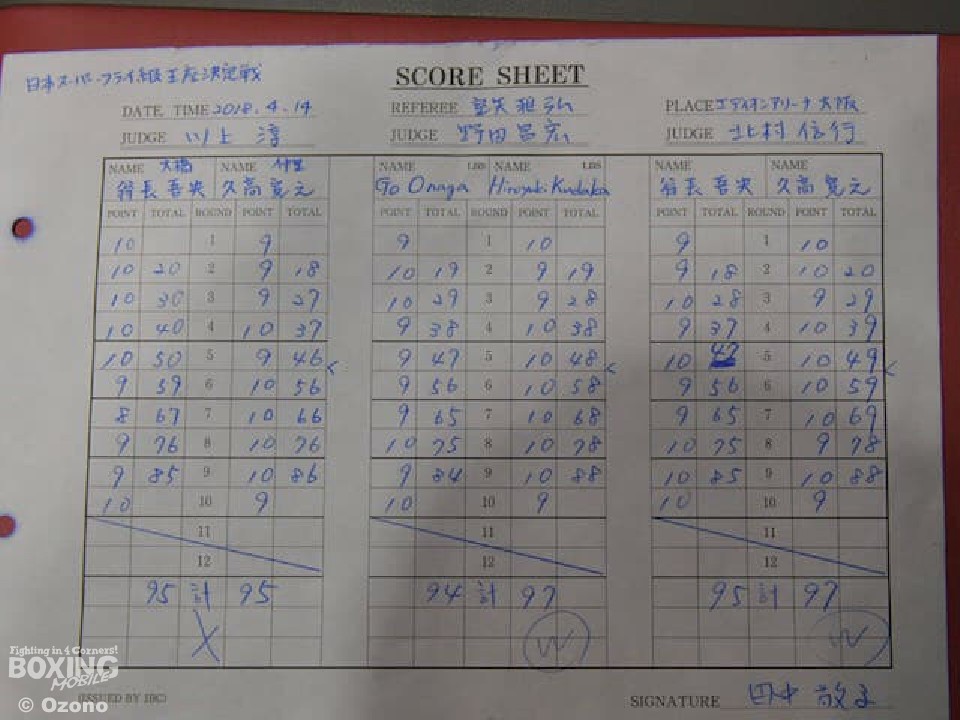 日本スーパーフライ級王座決定戦
SCORE SHEET
DATE, TIME 2018.4.14 REFEREE PLACE エディオンアリーナ大阪
JUDGE 川上 淳 JUDGE 野田昌宏 JUDGE 北村信行
NAME 大橋 NAME 仲里 NAME LBS NAME LBS NAME NAME
翁長吾央 久高寛之 Go Onaga Hiroyuki Kudaka 翁長吾央 久高寛之
POINT TOTAL ROUND POINT TOTAL POINT TOTAL ROUND POINT TOTAL POINT TOTAL ROUND POINT TOTAL
10 1 9 9 1 10 9 1 10
10 20 2 9 18 10 19 2 9 19 9 18 2 10 20
10 30 3 9 27 10 29 3 9 28 10 28 3 9 29
10 40 4 10 37 9 38 4 10 38 9 37 4 10 39
10 50 5 9 46 < 9 47 5 10 48 < 10 47 5 10 49 <
9 59 6 10 56 9 56 6 10 58 9 56 6 10 59
8 67 7 10 66 9 65 7 10 68 9 65 7 10 69
9 76 8 10 76 10 75 8 10 78 10 75 8 9 78
9 85 9 10 86 9 84 9 10 88 10 85 9 10 88
10 10 9 10 10 9 10 10 9
11 11 11
12 12 12
95 計 95 94 計 97 95 計 97
X W W
Fighting in 4 Corners!
BOXING
MOBILE
(ISSUED BY JBC)
SIGNATURE
© Ozono